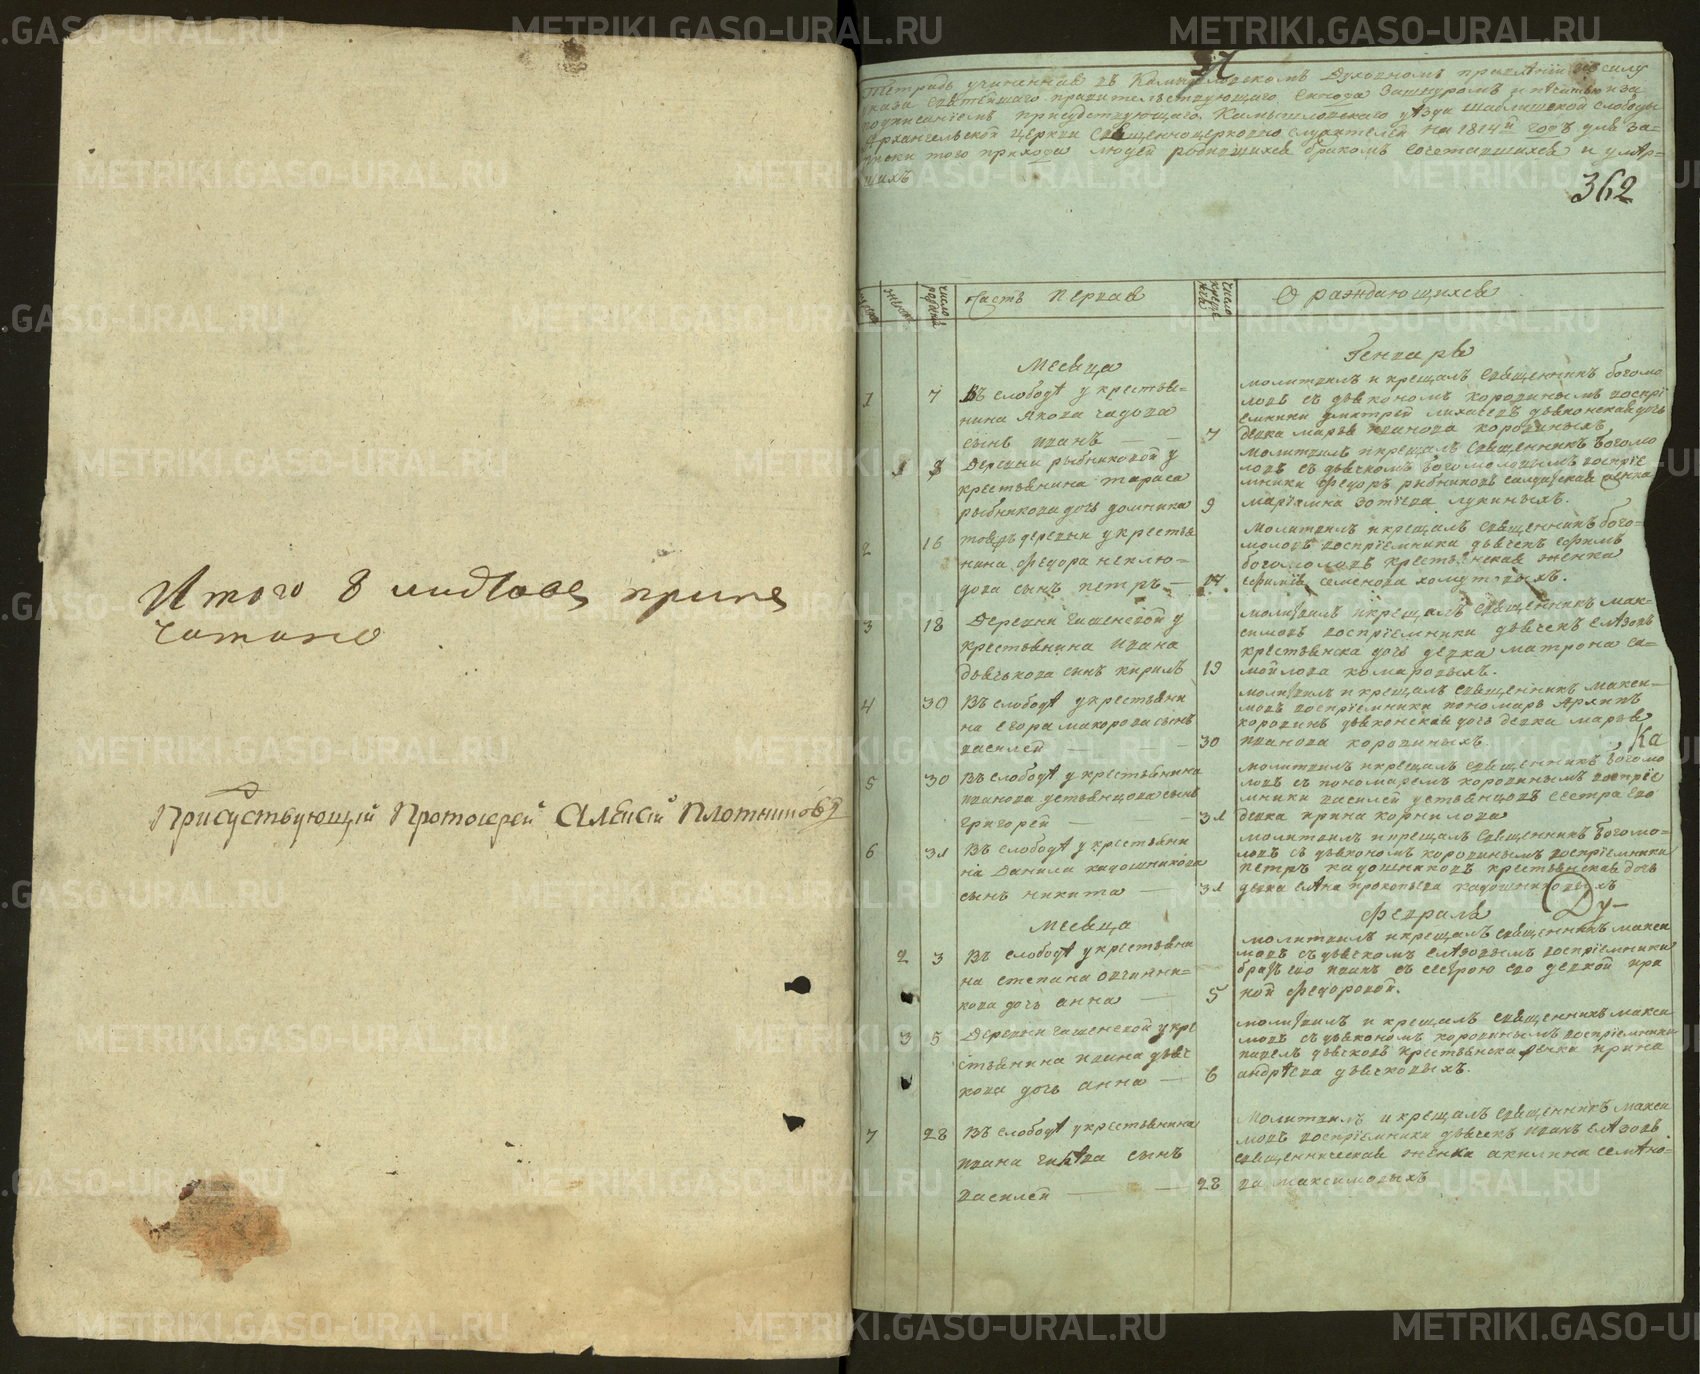 Итого 8 листовъ припе
чатано
Присудствующій Протоіерей Алексій Плотниковъ
Тетрадь учиненная въ Камышловскомъ Духовномъ правленіи въ силу
указа Святѣйшаго правительствующаго Синода Зашнуромъ и печатью и за
подписаніемъ присудствующаго, Камышловскаго уѣзда Шаблишской слободы
Архангельской церкви священноцерковно служителей на 1814й годъ для за=
писки того прихода людей родившихся бракомъ сочетавшихся и умер=
шихъ
362
число родив
Часть первая
число креще нія
О раждающихся
Месяца
Генваря
1
7
Въ слободѣ у крестья=
нина Якова
сынъ иванъ
7
молитвилъ и крещалъ священникъ богомо
ловъ съ дьякономъ коровинымъ воспрі
емники дмитрей дьяконская дочь
девка марья иванова коровиныхъ
1
8
Деревни рыбниковой у
крестьянина тараса
рыбникова дочь домника
9
молитвилъ и крещалъ священникъ богомо
ловъ съ дьячкомъ богомоловымъ воспріе
мники федоръ рыбниковъ салдатская женка
маріамна зотіева лукиныхъ.
2
16
тояжъ деревни у крестья
нина федора неклю=
дова сынъ петръ
17
молитвилъ и крещалъ священникъ бого=
моловъ воспріемники дьячекъ ефимъ
богомоловъ крестьянская женка
ефимія семенова хомутовыхъ.
3
18
Деревни гашеневой у
крестьянина ивана
дьячькова сынъ кирилъ
19
молитвилъ и крещалъ священникъ мак=
симовъ воспріемники дьячекъ елѣзовъ
крестьянска дочь девка матрона са=
мойлова комаровыхъ.
4
30
Въ слободѣ у крестьяни
на егора макорова сынъ
василей
30
молитвилъ и крещалъ священникъ макси=
мовъ воспріемники пономарь Архипъ
коровинъ дьяконская дочь девка марья
иванова коровиныхъ
Ка
5
30
Въ слободѣ у крестьянина
иванова устьянцова сынъ
григорей
31
молитвилъ и крещалъ священникъ богомо
ловъ съ пономаремъ коровинымъ воспріе
мники василей устьянцовъ сестра его
девка ирина корнилова
6
31
Въ слободѣ у крестьяни
на Данила кадошникова
сынъ никита
31
молитвилъ и крещалъ священникъ богомо=
ловъ съ дьякономъ коровинымъ воспріемники
петръ кадошниковъ крестьянская дочь
девка елѣна прокопьева кадошниковыхъ
Ду=
Месяца
Февраля
2
3
Въ слободѣ у крестьяни
на степана овчинни=
кова дочь анна
5
молитвилъ и крещалъ священникъ макси
мовъ съ дьячкомъ елѣзовымъ воспріемники
братъ его иванъ съ сестрою его девкой ири
ной федоровой.
3
5
Деревни гашеневой у кре
стьянина ивана дьяч
кова дочь анна
6
молитвилъ и крещалъ священникъ макси
мовъ съ дьякономъ коровинымъ воспріемники
павелъ дьячковъ крестьянска женка ирина
андрѣева дьячковыхъ.
7
28
Въ слободѣ у крестьянина
ивана сынъ
василей
28
молитвилъ и крещалъ священникъ макси
мовъ воспріемники дьячекъ иванъ елѣзовъ
священническая женка акилина семѣно=
ва максимовыхъ